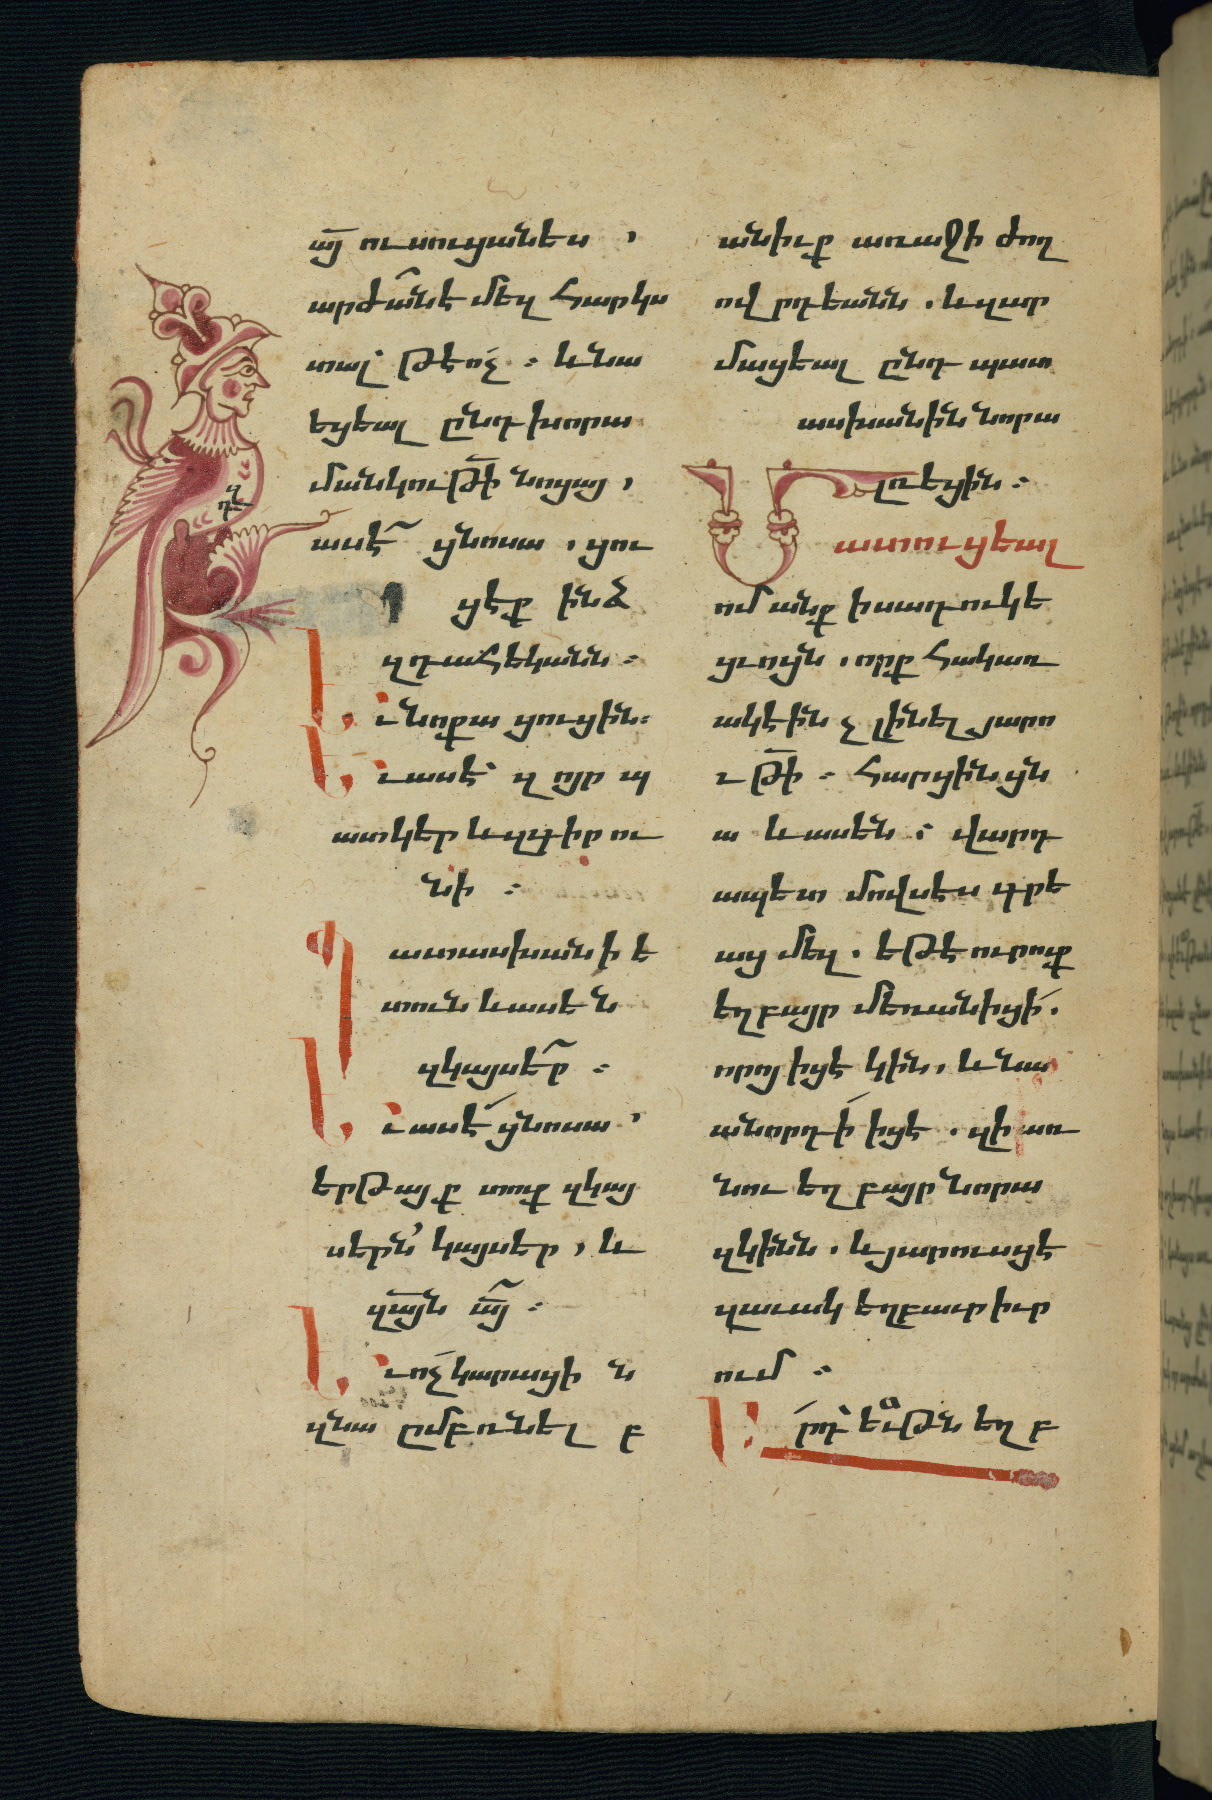 այ ուսուցանես ,
արժանէ մեզ հարկս
տալ թէոչ ։ և նա
եցեալ ընդ խորա
մանկութի նոցայ ,
ասէ ցնոսա , ցու
ցէք ինձ
զդահեկանն ։
Եւ նոքա ցուցին։
Եւ ասէ զոյր պ
ատկեր և զգիր ու
նի ։
Պատասխանի ե
տուն և ասեն
զկայսեր ։
Եւ ասէ ցնոսա ,
երթայք տուք զկայ
սերն կայսեր , և
զայն այ ։
Եւ ոչ կարացին
զնա ըմբռնել բ
զ
ղե
անիւք առաջի ժող
ովրդեանն . և զար
մացեալ ընդ պատ
ասխանին նորա
լռեցին ։
Մատուցեալ
ոմանք ի սադուկե
ցւոցն . որք հակառ
ակէին չլինել յարո
ւթի ։ հարցին ցն
ա և ասեն ։ վարդ
ապետ մովսես գրե
աց մեզ . եթէ ուրուք
եղբայր մեռանիցի .
որոյ իցէ կին , և նա
անորդի իցէ . զի առ
նու եղբայր նորա
զկինն . և յարուսցէ
զաւակ եղբաւր իւր
ում ։
Եւ րդ եւթն եղ բ